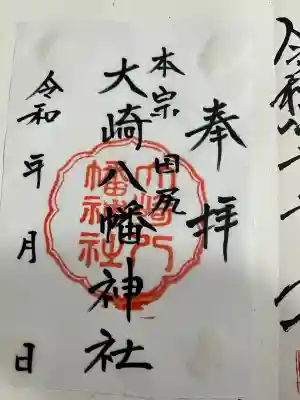 奉拝
本宗 田尻
大崎八幡神社
令和 年 月 日
大崎八幡神社